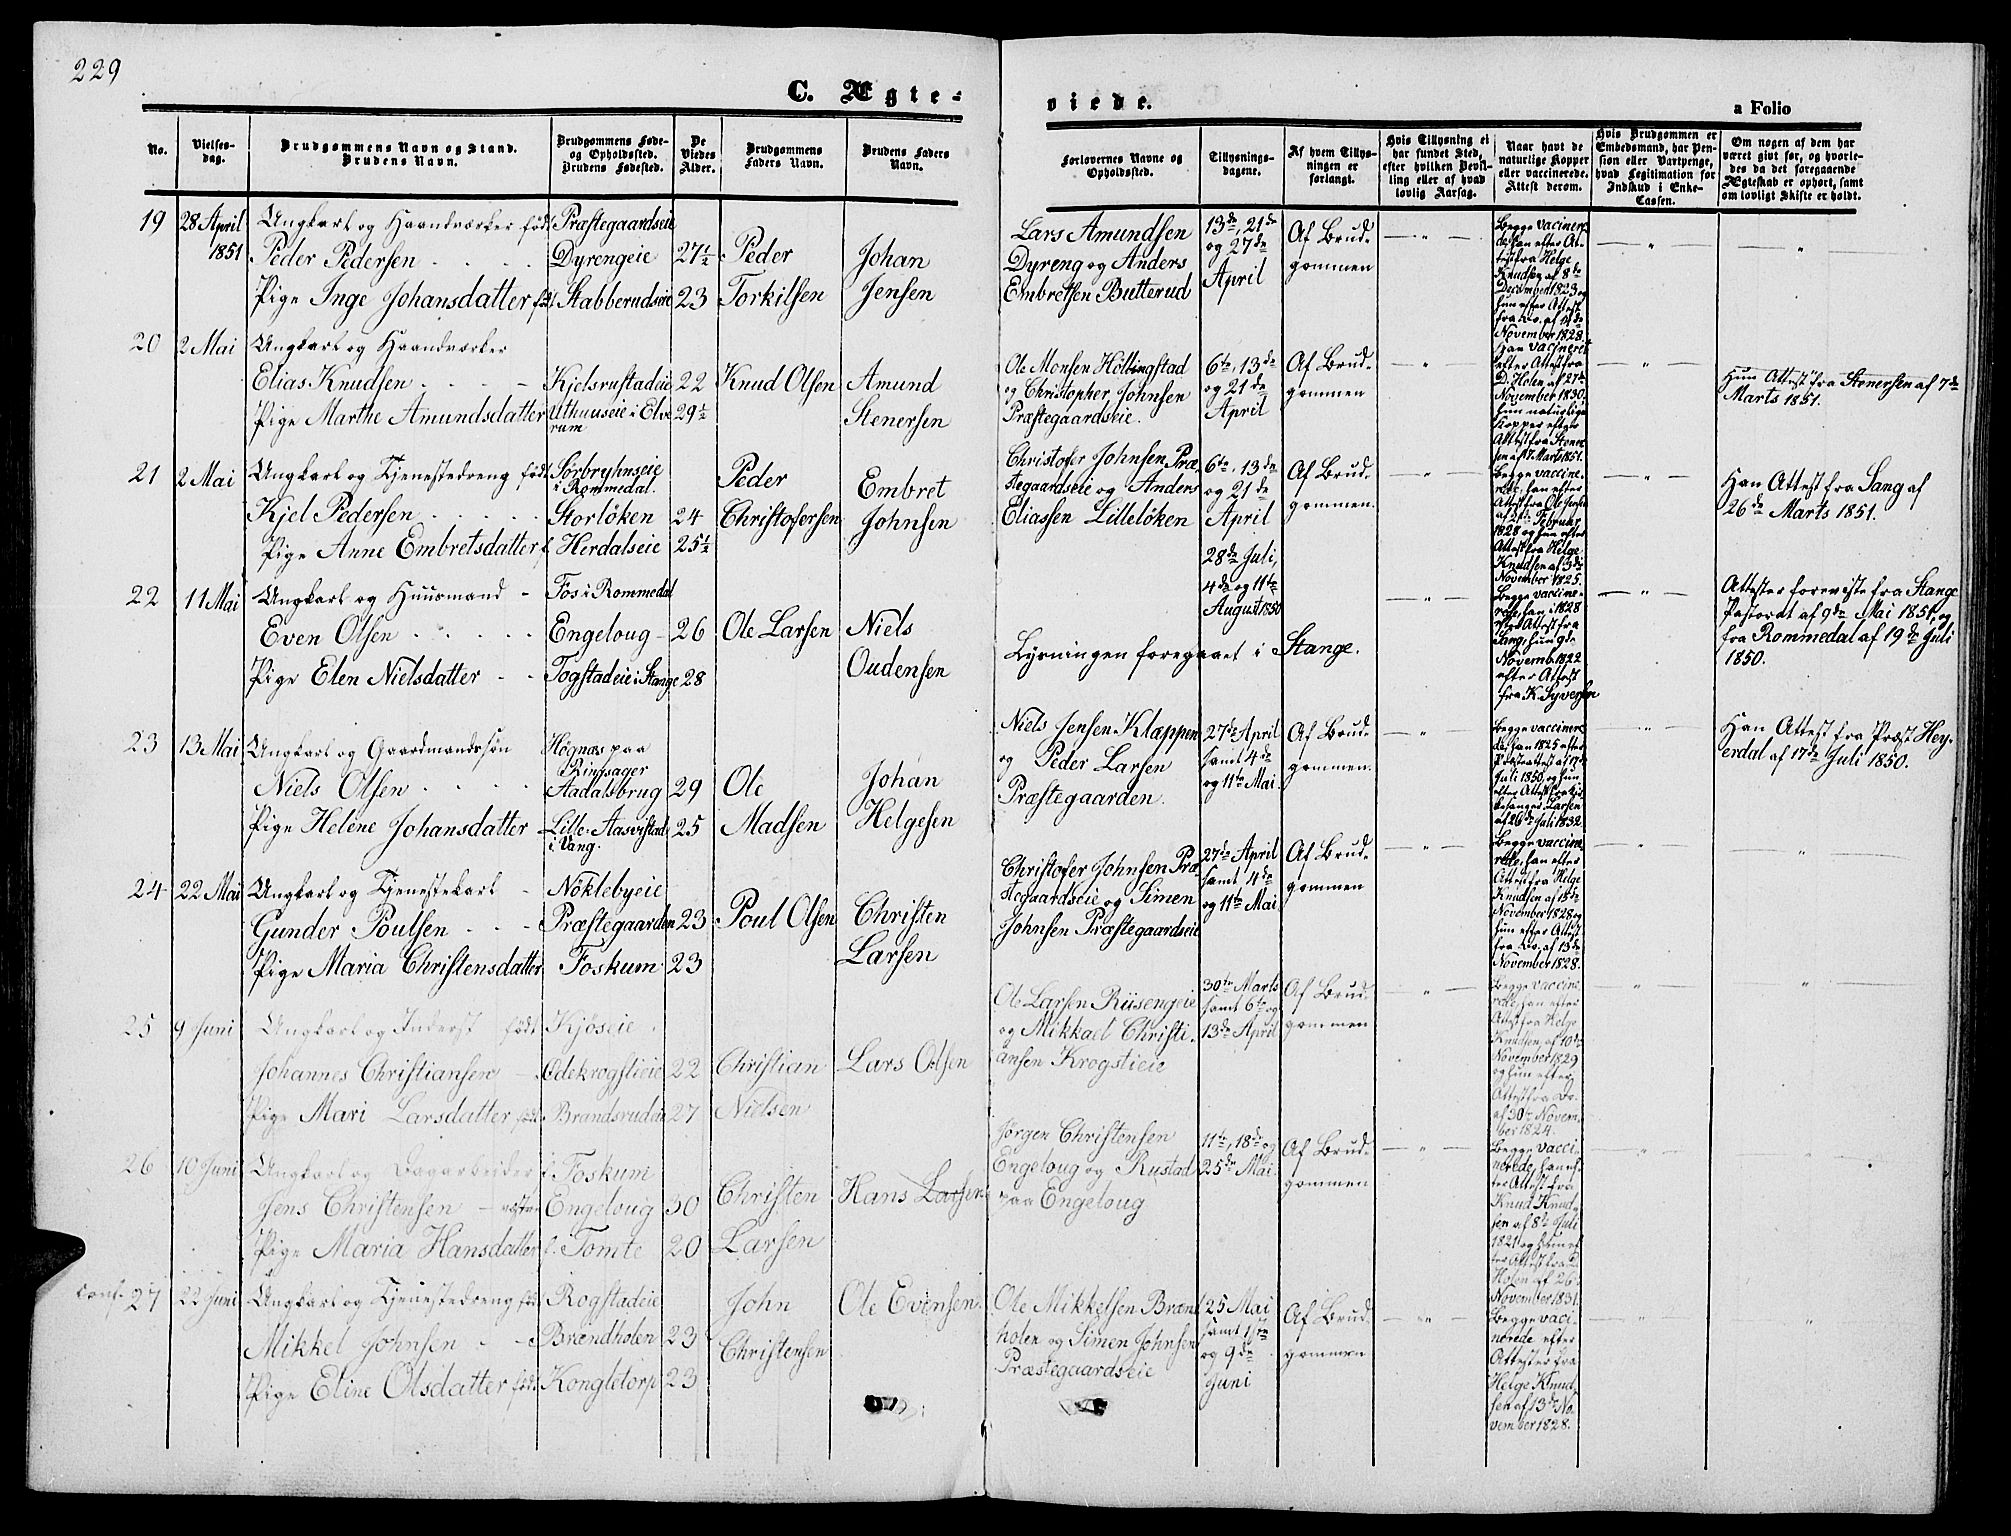 229
C. Ægte-
viede.
a Folio
No.
Vielses-
dag.
Brudgommens Navn og Stand.
Brudens Navn.
Brudgommens Føde-
og Opholdssted.
Brudens Fødested.
De
Viedes
Alder.
Brudgommens
Faders Navn.
Brudens Faders
Navn.
Forlovernes Navne og
Opholdssted.
Tillysnings-
dagene.
Af hvem Tillys-
ningen er
forlangt.
Hvis Tillysning ei
har fundet Sted,
efter hvilken Bevil-
ling eller af hvad
lovlig Aarsag.
Naar havt de
naturlige Kopper
eller vaccinerede.
Attest derom.
Hvis Brudgommen er
Embedsmand, har Pen-
sion eller Vartpenge,
hvad Legitimation for
Indskud i Enke-
Cassen.
Om nogen af dem har
været givt før, og hvorle-
des da det foregaaende
Ægteskab er ophørt, samt
om lovligt Skifte er holdt.
19
28 April
1851
Ungkarl og Haandværker født
Peder Pedersen
Pige Inge Johansdatter f
Præstegaardseie
Dyrengeie
Stabberudseie
27½
23
Peder
Torkilsen
Johan
Jensen
Lars Amundsen
Dyreng og Anders
Embretsen Butterud
13de, 21de
og 27de
April
Af Brud-
gommen
Begge vacinere-
de, han efter At-
test fra Helge
Knudsen af 8de
December 1823 og
hun efter Attest
fra Do. af 14de
November 1828.
20
2 Mai
Ungkarl og Haandværker
Elias Knudsen
Pige Marthe Amundsdatter
Kjelsrustadeie
Uthuuseie i Elve
rum
22
29½
Knud Olsen
Amund
Stenersen
Ole Monsen Hollingstad
og Christopher Johnsen
Præstegaardseie.
6te, 13de
og 21de
April
Af Brud-
gommen
Han vacineret
efter Attest fra
D. Holen af 27de
November 1830.
hun naturlige
Kopper efter
Attest fra Stener
sen af 7. Marts 1851.
Hun Attest fra Stenersen af 7de
Marts 1851.
21
2 Mai
Ungkarl og Tjenestedreng født
Kjel Pedersen
Pige Anne Embretsdatter f
Sörbryhnseie
i Rommedal.
Storlöken
Herdalseie
24
25½
Peder
Christofersen
Embret
Johnsen
Christofer Johnsen Præ-
stegaardseie og Anders
Eliassen Lilleløken
6te, 13de
og 21de
April
Af Brud-
gommen.
Begge vaccine-
rede, han efter
Attest fra Ole Jensen
af 21de Februar
1828 og hun efter
Attest fra Helge
Knudsen af 3die
November 1825.
Han Attest fra Sang af
26de Marts 1851.
22
11 Mai
Ungkarl og Huusmand
Even Olsen
Pige Elen Nielsdatter
Fos i Rommedal
Engeloug
Togstadeie i Stange
26
28
Ole Larsen
Niels
Oudensen
28de Juli,
4de og 11te
August 1850
Lysningen foregaaet i Stange.
Begge vaccine-
rede, han i 1828
efter Attest fra
Sang, hun 9de
Novemb. 1822
efter Attest
fra K. Syversen
Attester foreviste fra Stange
Pastorat af 9de Mai 1851, og
fra Rommedal af 19de Juli
1850.
23
13 Mai
Ungkarl og Gaardmandssön
Niels Olsen
Pige Helene Johansdatter
Høgnæs paa
Ringsager
Aadalsbrug
Lille-Aasvestad
i Vang.
29
25
Ole
Madsen
Johan
Helgesen
Niels Jensen Klappen
og Peder Larsen
Præstegaarden.
27de April
samt 4de
og 11te Mai.
Af Brud-
gommen.
Begge vaccinere-
de, han 1825 efter
Præsteattest af 17de
Juli 1850, og hun
efter Attest fra Kir-
kesanger Larsen
af 26de Juli 1832.
Han Attest fra Præst Hey-
erdal af 17de Juli 1850.
24
22 Mai
Ungkarl og Tjenestekarl
Gunder Poulsen
Pige Maria Christensdatter
Nöklebyeie
Præstegaarden
Foskum
23
23
Poul Olsen
Christen
Larsen
Christofer Johnsen Præ-
stegaardseie og Simen
Johnsen Præstegaardseie
27de April
samt 4de
og 11te Mai.
Af Brud-
gommen
Begge vaccine
rede, han efter
Attest fra Helge
Knudsen af 15de
November 1828 og
hun efter Attest
fra Do. af 13de
November 1828.
25
9 Juni
Ungkarl og Inderst født
Johannes Christiansen
Pige Mari Larsdatter født
Kjöseie
Ödekrogstieie
Brandsrudeie
22
27
Christian
Nielsen
Lars Olsen
Ole Larsen Riisengeie
og Mikkael Christi-
ansen Krogstieie
30te Marts
samt 6te og
13de April
Af Brud-
gommen
Begge vaccine
rede, han efter
Attest fra Helge
Knudsen, af 10de
November 1829
og hun efter
Attest fra Do.
af 30te Novem-
ber 1824.
26
10 Juni
Ungkarl og Dagarbeider f.
Jens Christensen
Pige Maria Hansdatter f.
Foskum
Engeloug
Tomte
30
20
Christen
Larsen
Hans Larsen
Jørgen Christensen
Engeloug og Rustad
paa Engeloug
11te, 18de og
25de Mai.
Af Brud-
gommen
Begge vacci-
nerede, han ef-
ter Attest fra
Knud Knud-
sen af 8de Juli
1821 og hun ef-
ter Attest fra D.
Holen af 26
November 1831.
conf. 27
22 Juni
Ungkarl og Tjenestedreng fød
Mikkel Johnsen
Pige Eline Olsdatter født
Rogstadeie
Brændholen
Kongletorp
23
23
John
Christensen
Ole Evensen
Ole Mikkelsen Brænd
holen og Simen Johnsen
Præstegaardseie
25 Mai
samt 1ste
og 9de
Juni
Af Brud-
gommen
Begge vaci-
nerede efter
Attester fra
Helge Knud-
sen af 13de No-
vember 1828.